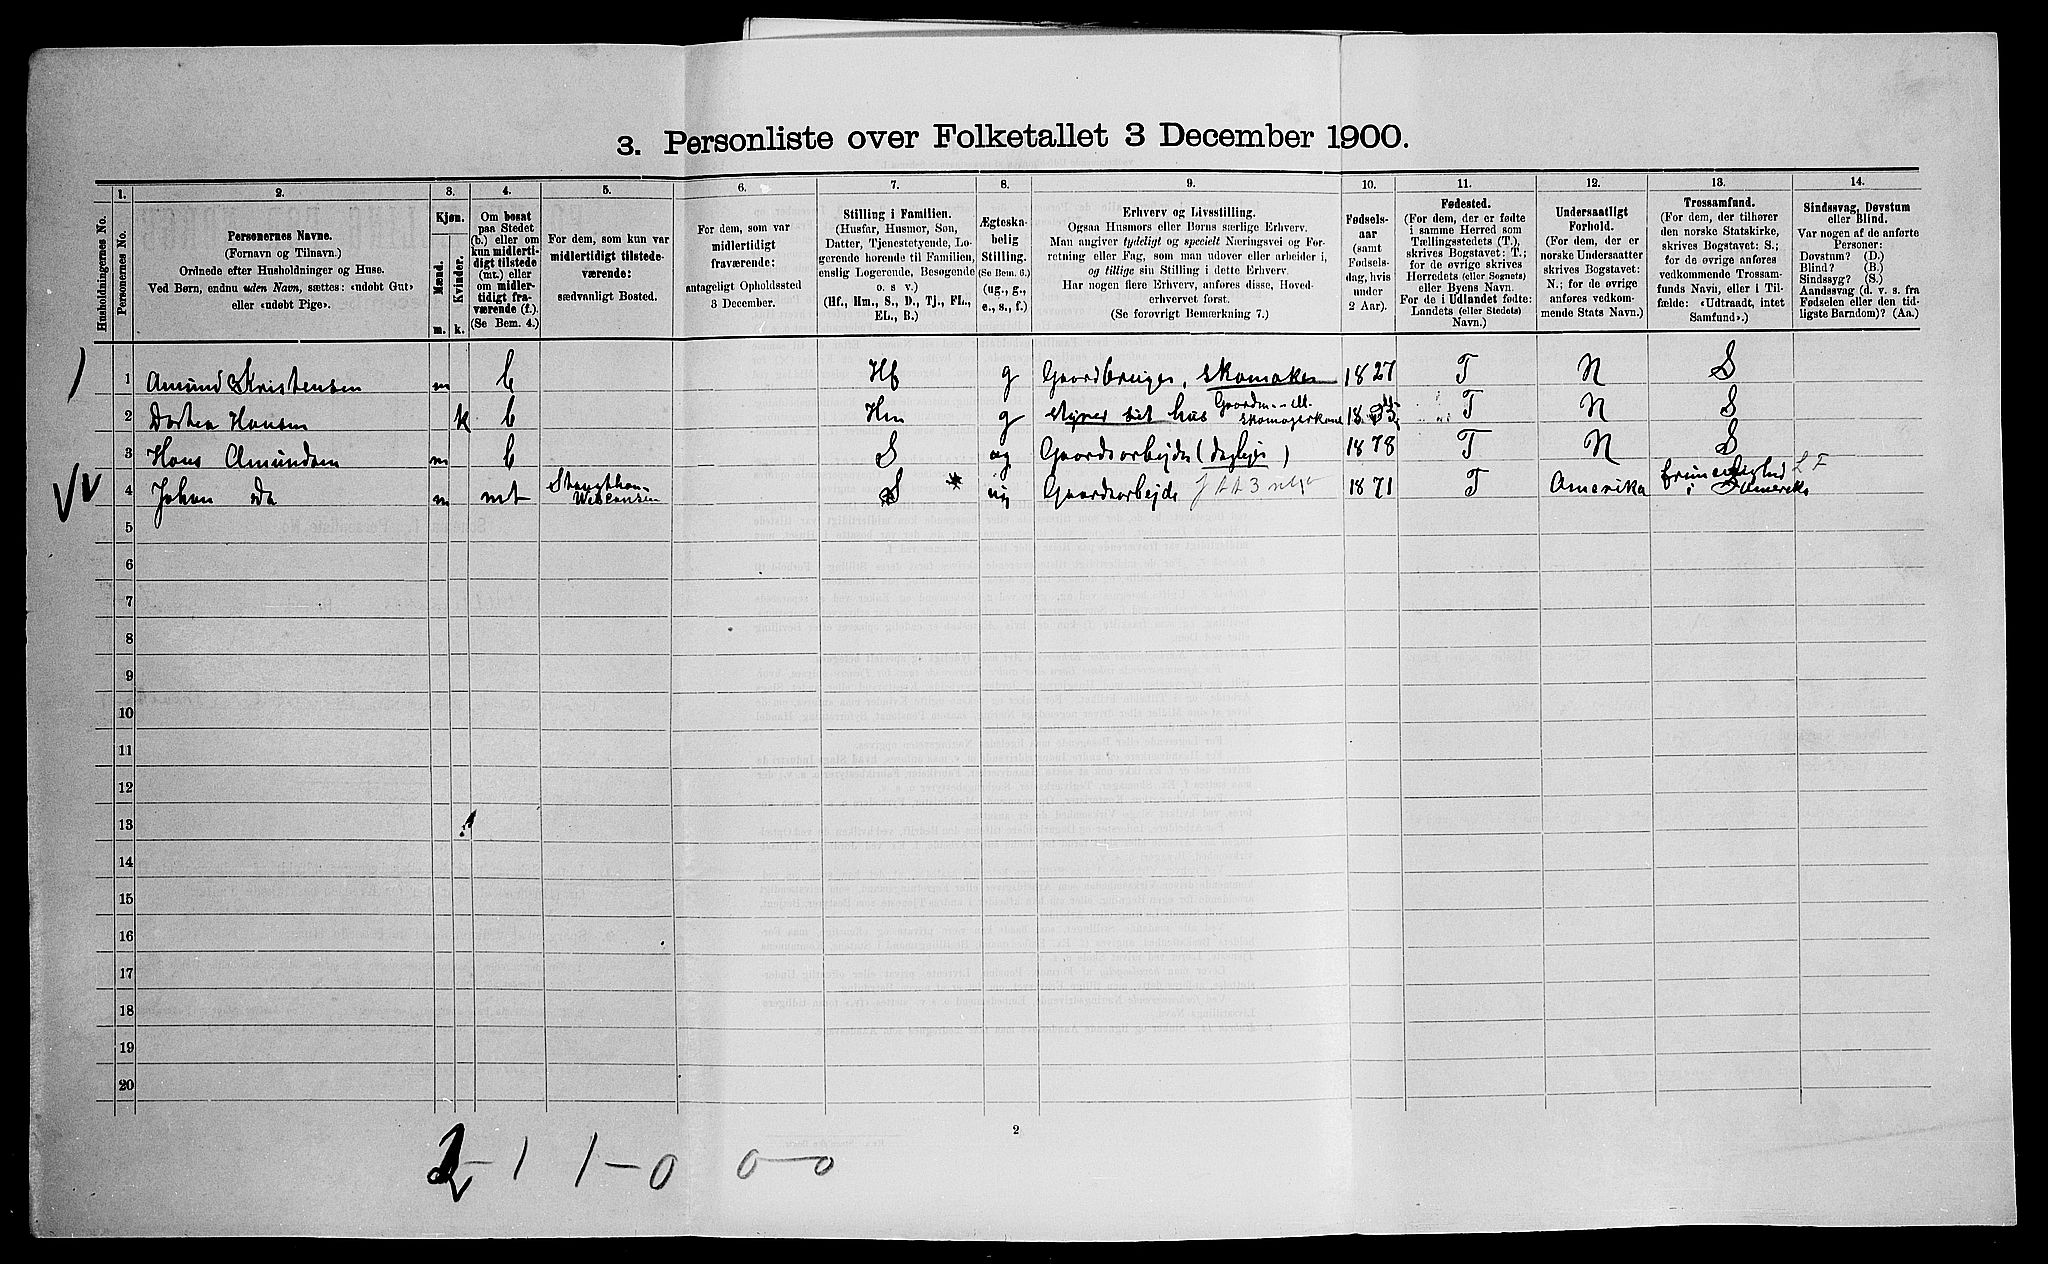 3. Personliste over Folketallet 3 December 1900.
1. 2. 3. 4. 5. 6. 7. 8. 9. 10. 11. 12. 13. 14.
Husholdningernes No.
Personernes No.
Personernes Navne.
(Fornavn og Tilnavn.)
Ordnede efter Husholdninger og Huse.
Ved Børn, endnu uden Navn, sættes: «udøbt Gut»
eller «udøbt Pige».
Kjøn.
Mænd.
Kvinder.
m. k.
Om bosat
paa Stedet
(b.) eller om
kun midlerti-
digt tilstede
(mt.) eller
om midler-
tidigt fra-
værende (f.).
(Se Bem. 4.)
For dem, som kun var
midlertidigt tilstede-
værende:
sædvanligt Bosted.
For dem, som var
midlertidigt
fraværende:
antageligt Opholdssted
3 December.
Stilling i Familien.
(Husfar, Husmor, Søn,
Datter, Tjenestetyende, Lo-
gerende hørende til Familien,
enslig Logerende, Besøgende
o. s. v.)
(Hf., Hm., S., D., Tj., FL.,
EL., B.)
Ægteska-
belig
Stilling.
(Se Bem. 6.)
(ug., g.,
e., s., f.)
Erhverv og Livsstilling.
Ogsaa Husmors eller Børns særlige Erhverv.
Man angiver tydeligt og specielt Næringsvei og For-
retning eller Fag, som man udøver eller arbeider i,
og tillige sin Stilling i dette Erhverv.
Har nogen flere Erhverv, anføres disse, Hoved-
erhvervet først.
(Se forøvrigt Bemærkning 7.)
Fødsels-
aar
(samt
Fødsels-
dag, hvis
under
2 Aar).
Fødested.
(For dem, der er fødte
i samme Herred som
Tællingsstedets (T.),
skrives Bogstavet: T.;
for de øvrige skrives
Herredets (eller Sognets)
eller Byens Navn.
For de i Udlandet fødte:
Landets (eller Stedets)
Navn.)
Undersaatligt
Forhold.
(For dem, der er
norske Undersaatter
skrives Bogstavet:
N.; for de øvrige
anføres vedkom-
mende Stats Navn.)
Trossamfund.
(For dem, der tilhører
den norske Statskirke,
skrives Bogstavet: S.;
for de øvrige anføres
vedkommende Trossam-
funds Navn, eller i Til-
fælde: «Udtraadt, intet
Samfund».)
Sindssvag, Døvstum
eller Blind.
Var nogen af de anførte
Personer:
Døvstum? (D.)
Blind? (B.)
Sindssyg? (S.)
Aandssvag (d. v. s. fra
Fødselen eller den tid-
ligste Barndom)? (Aa.)
1 Amund Kristensen m b Hf g Gaardbruger, skomaker 1827 T N S
2 Dortea Hansen k b Hm g styrer sit hus Gaardm skomagerkone T N S
3 Hans Amundsen m b S ug Gaardsarbejde (dagleje) 1878 T N S
4 Johan do m mt Staughton Wisconsen S * ug Gaardsarbejde 1871 T Amerika frimenighed i Amerika LF
5
6
7
8
9
10
11
12
13
14
15
16
17
18
19
20
2
2-1 1-0 0-0